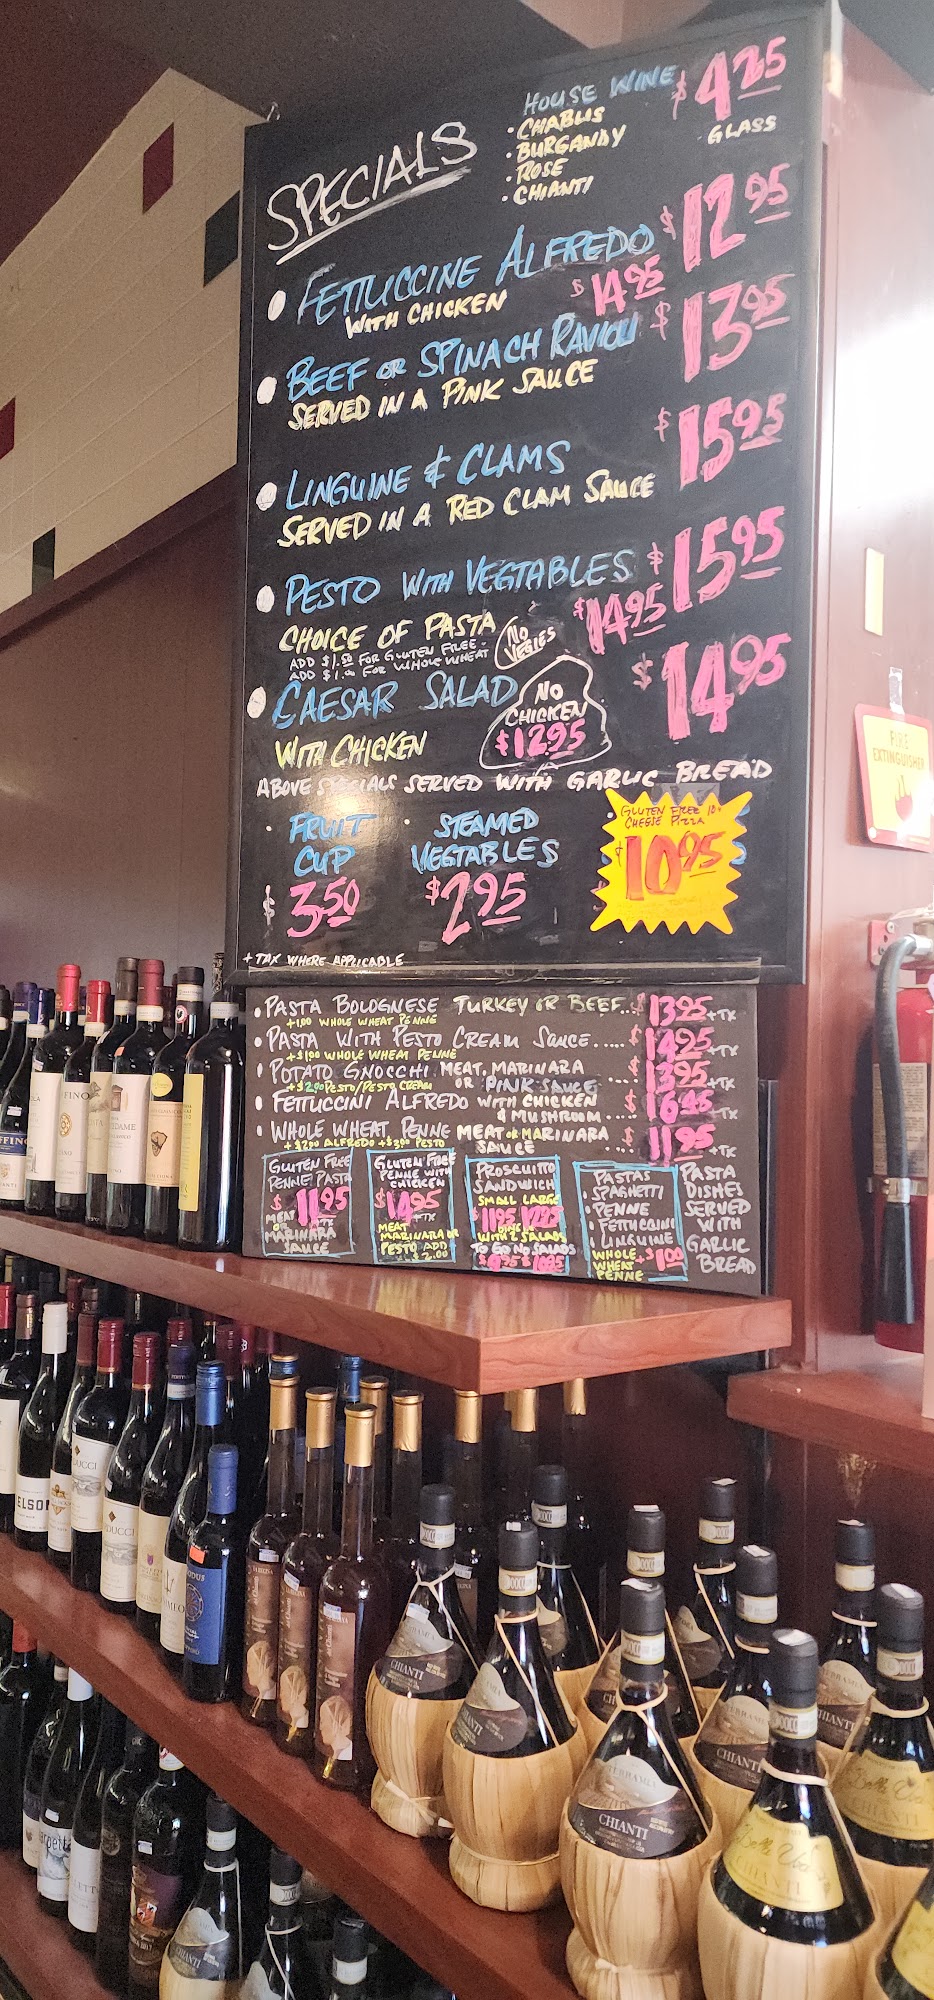 SPECIALS
HOUSE WINE $4.25
• CHABLIS GLASS
• BURGANDY
• ROSE
• CHIANTI
FETTUCCINE ALFREDO $12.95
WITH CHICKEN $14.95
BEEF OR SPINACH RAVIOLI $13.95
SERVED IN A PINK SAUCE
LINGUINE & CLAMS $15.95
SERVED IN A RED CLAM SAUCE
PESTO WITH VEGTABLES $15.95
CHOICE OF PASTA NO VEGIES $14.95
ADD $1.50 FOR GLUTEN FREE
ADD $1.00 FOR WHOLE WHEAT
CAESAR SALAD $14.95
WITH CHICKEN NO CHICKEN $12.95
ABOVE SPECIALS SERVED WITH GARLIC BREAD
• FRUIT CUP
$3.50
• STEAMED VEGTABLES
$2.95
GLUTEN FREE 10"
CHEESE PIZZA
$10.95
+ TAX WHERE APPLICABLE
• PASTA BOLOGNESE TURKEY OR BEEF... $13.95 +TX
+1.00 WHOLE WHEAT PENNE
• PASTA WITH PESTO CREAM SAUCE..... $14.25 +TX
+$1.00 WHOLE WHEAT PENNE
• POTATO GNOCCHI. MEAT, MARINARA $13.95 +TX
+$2.00 PESTO/PESTO CREAM OR PINK SAUCE....
• FETTUCCINI ALFREDO WITH CHICKEN $16.45 +TX
& MUSHROOM....
• WHOLE WHEAT PENNE MEAT OR MARINARA $11.95 +TX
+$2.00 ALFREDO +$3.00 PESTO SAUCE....
GLUTEN FREE
PENNE PASTA
$11.95
+TX
MEAT
OR
MARINARA
SAUCE
GLUTEN FREE
PENNE WITH
CHICKEN
$14.95
+TX
MEAT
MARINARA OR
PESTO ADD
$2.00
PROSCUITTO
SANDWICH
SMALL LARGE
DINE IN
WITH 2 SALADS
TO GO NO SALADS
PASTAS
• SPAGHETTI
• PENNE
• FETTUCCINE
• LINGUINE
WHOLE
WHEAT
PENNE
+$1.00
PASTA
DISHES
SERVED
WITH
GARLIC
BREAD
FIRE
EXTINGUISHER
DUCCI
DUCCI
CHIANTI
CHIANTI
CHIANTI
CHIANTI
CHIANTI
CHIANTI
CHIANTI
CHIANTI